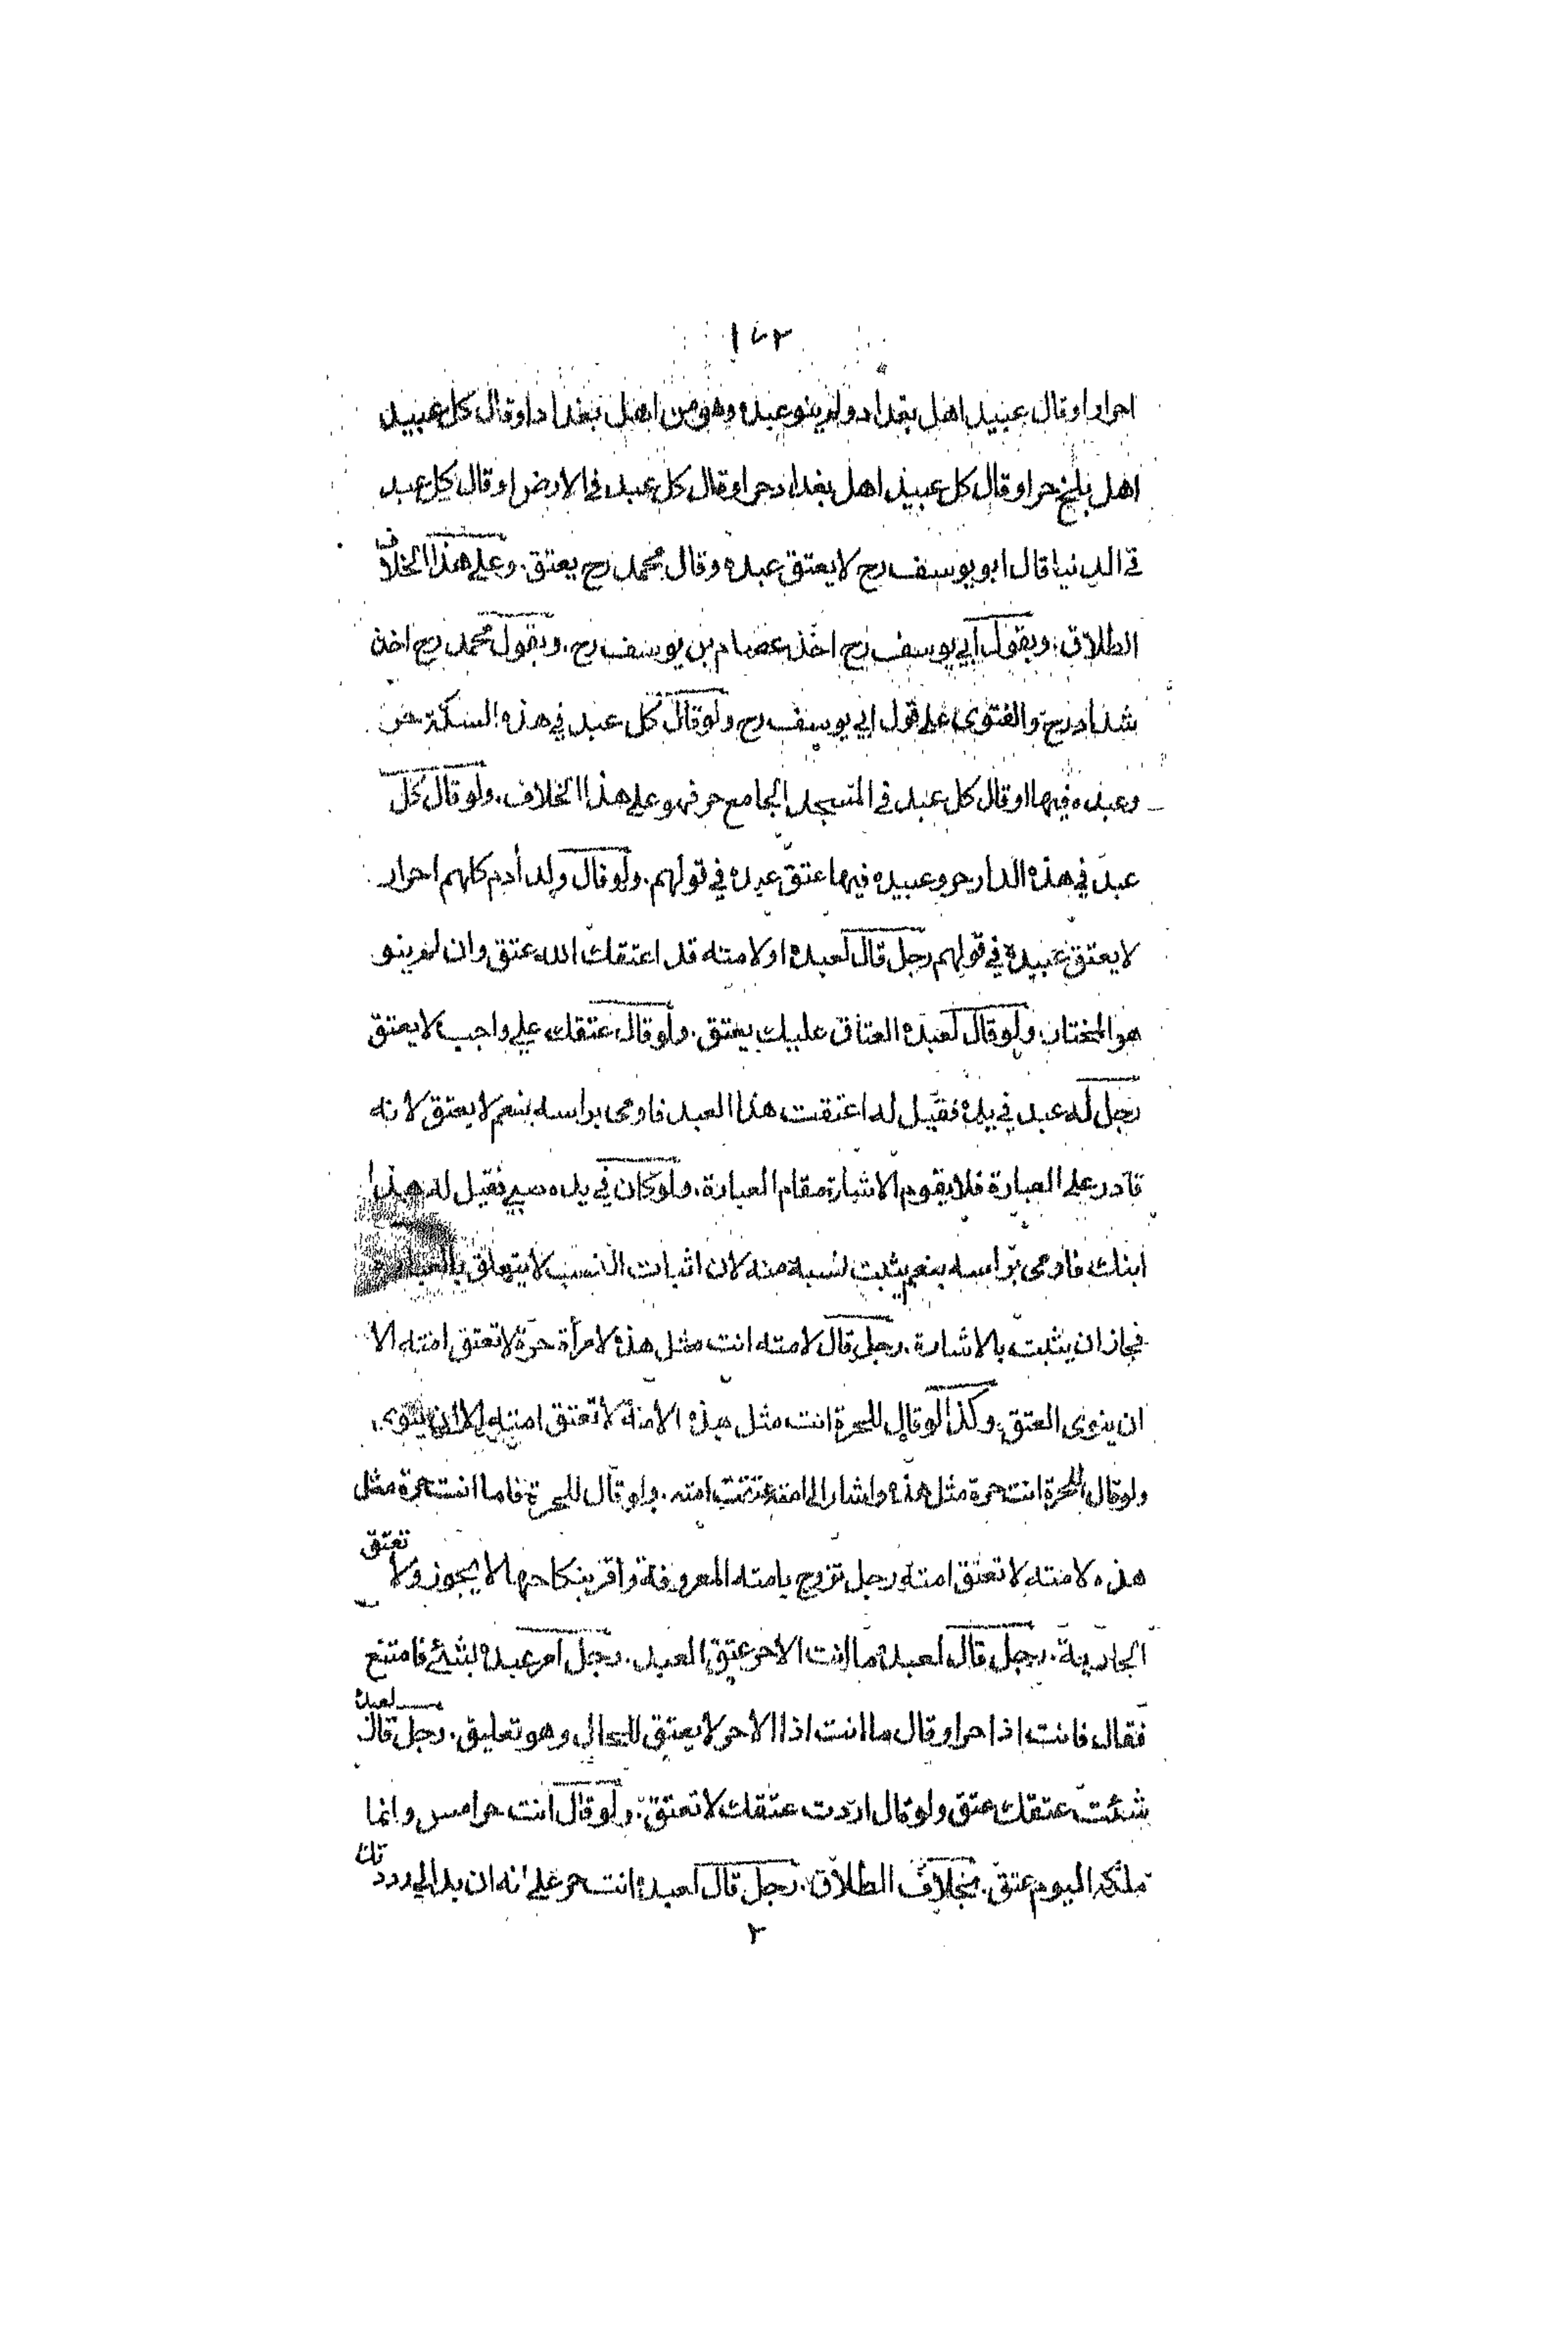 احرار او قال عبيد اهل بغداد ولم ينو عبده وهو من اهل بغداد او قال كل عبيد
اهل بلخ حر او قال كل عبيد اهل بغداد حر او قال كل عبد فى الارض او قال كل عبد
فى الدنيا قال ابو يوسف رح لا يعتق عبده وقال محمد رح يعتق. وعلى هذا الخلاف
الطلاق. وبقول ابى يوسف رح اخذ عصام بن يوسف رح. وبقول محمد رح اخذ
شداد رح والفتوى على قول ابى يوسف رح ولو قال كل عبد فى هذه السكة حر
وعبده فيها او قال كل عبد فى المسجد الجامع حر فهو على هذا الخلاف. ولو قال كل
عبد فى هذه الدار حر وعبيده فيها عتق عبيده فى قولهم. ولو قال ولد آدم كلهم احرار
لا يعتق عبيده فى قولهم رجل قال لعبده او لامته قد اعتقك الله عتق وان لم ينو
هو المختار ولو قال لعبده العتاق عليك يعتق. ولو قال عتقك على واجب لا يعتق
رجل له عبد فى يده فقيل له اعتقت هذا العبد فاومى براسه بنعم لا يعتق لانه
قادر على العبارة فلا يقوم الاشارة مقام العبارة. ولو كان فى يده صبى فقيل له هذا
ابنك فاومى براسه بنعم يثبت نسبه منه لان اثبات النسب لا يتعلق بالعبارة
فجاز ان يثبت بالاشارة. رجل قال لامته انت مثل هذه لامرأة حرة لا تعتق امته الا
ان ينوى العتق. وكذا لو قال للحرة انت مثل هذه الامة لا تعتق امته الا ان ينوى
ولو قال للحرة انت حرة مثل هذه واشار الى امته عتقت امته. ولو قال للحرة فاما انت حرة مثل
هذه لامته لا تعتق امته رجل تزوج بامته المعروفة واقر بنكاحها لا يجوز ولا تعتق
الجارية. رجل قال لعبده ما انت الا حر عتق العبد. رجل امر عبده بشئ فامتنع
فقال فانت اذا حر او قال ما انت اذا الا حر لا يعتق للحال وهو تعليق. رجل قال لعبده
شئت عتقك عتق ولو قال اردت عتقك لا تعتق. ولو قال انت حر امس وانما
ملكه اليوم عتق. بخلاف الطلاق. رجل قال لعبده انت حر على انه ان بدا لى رددتك
٢